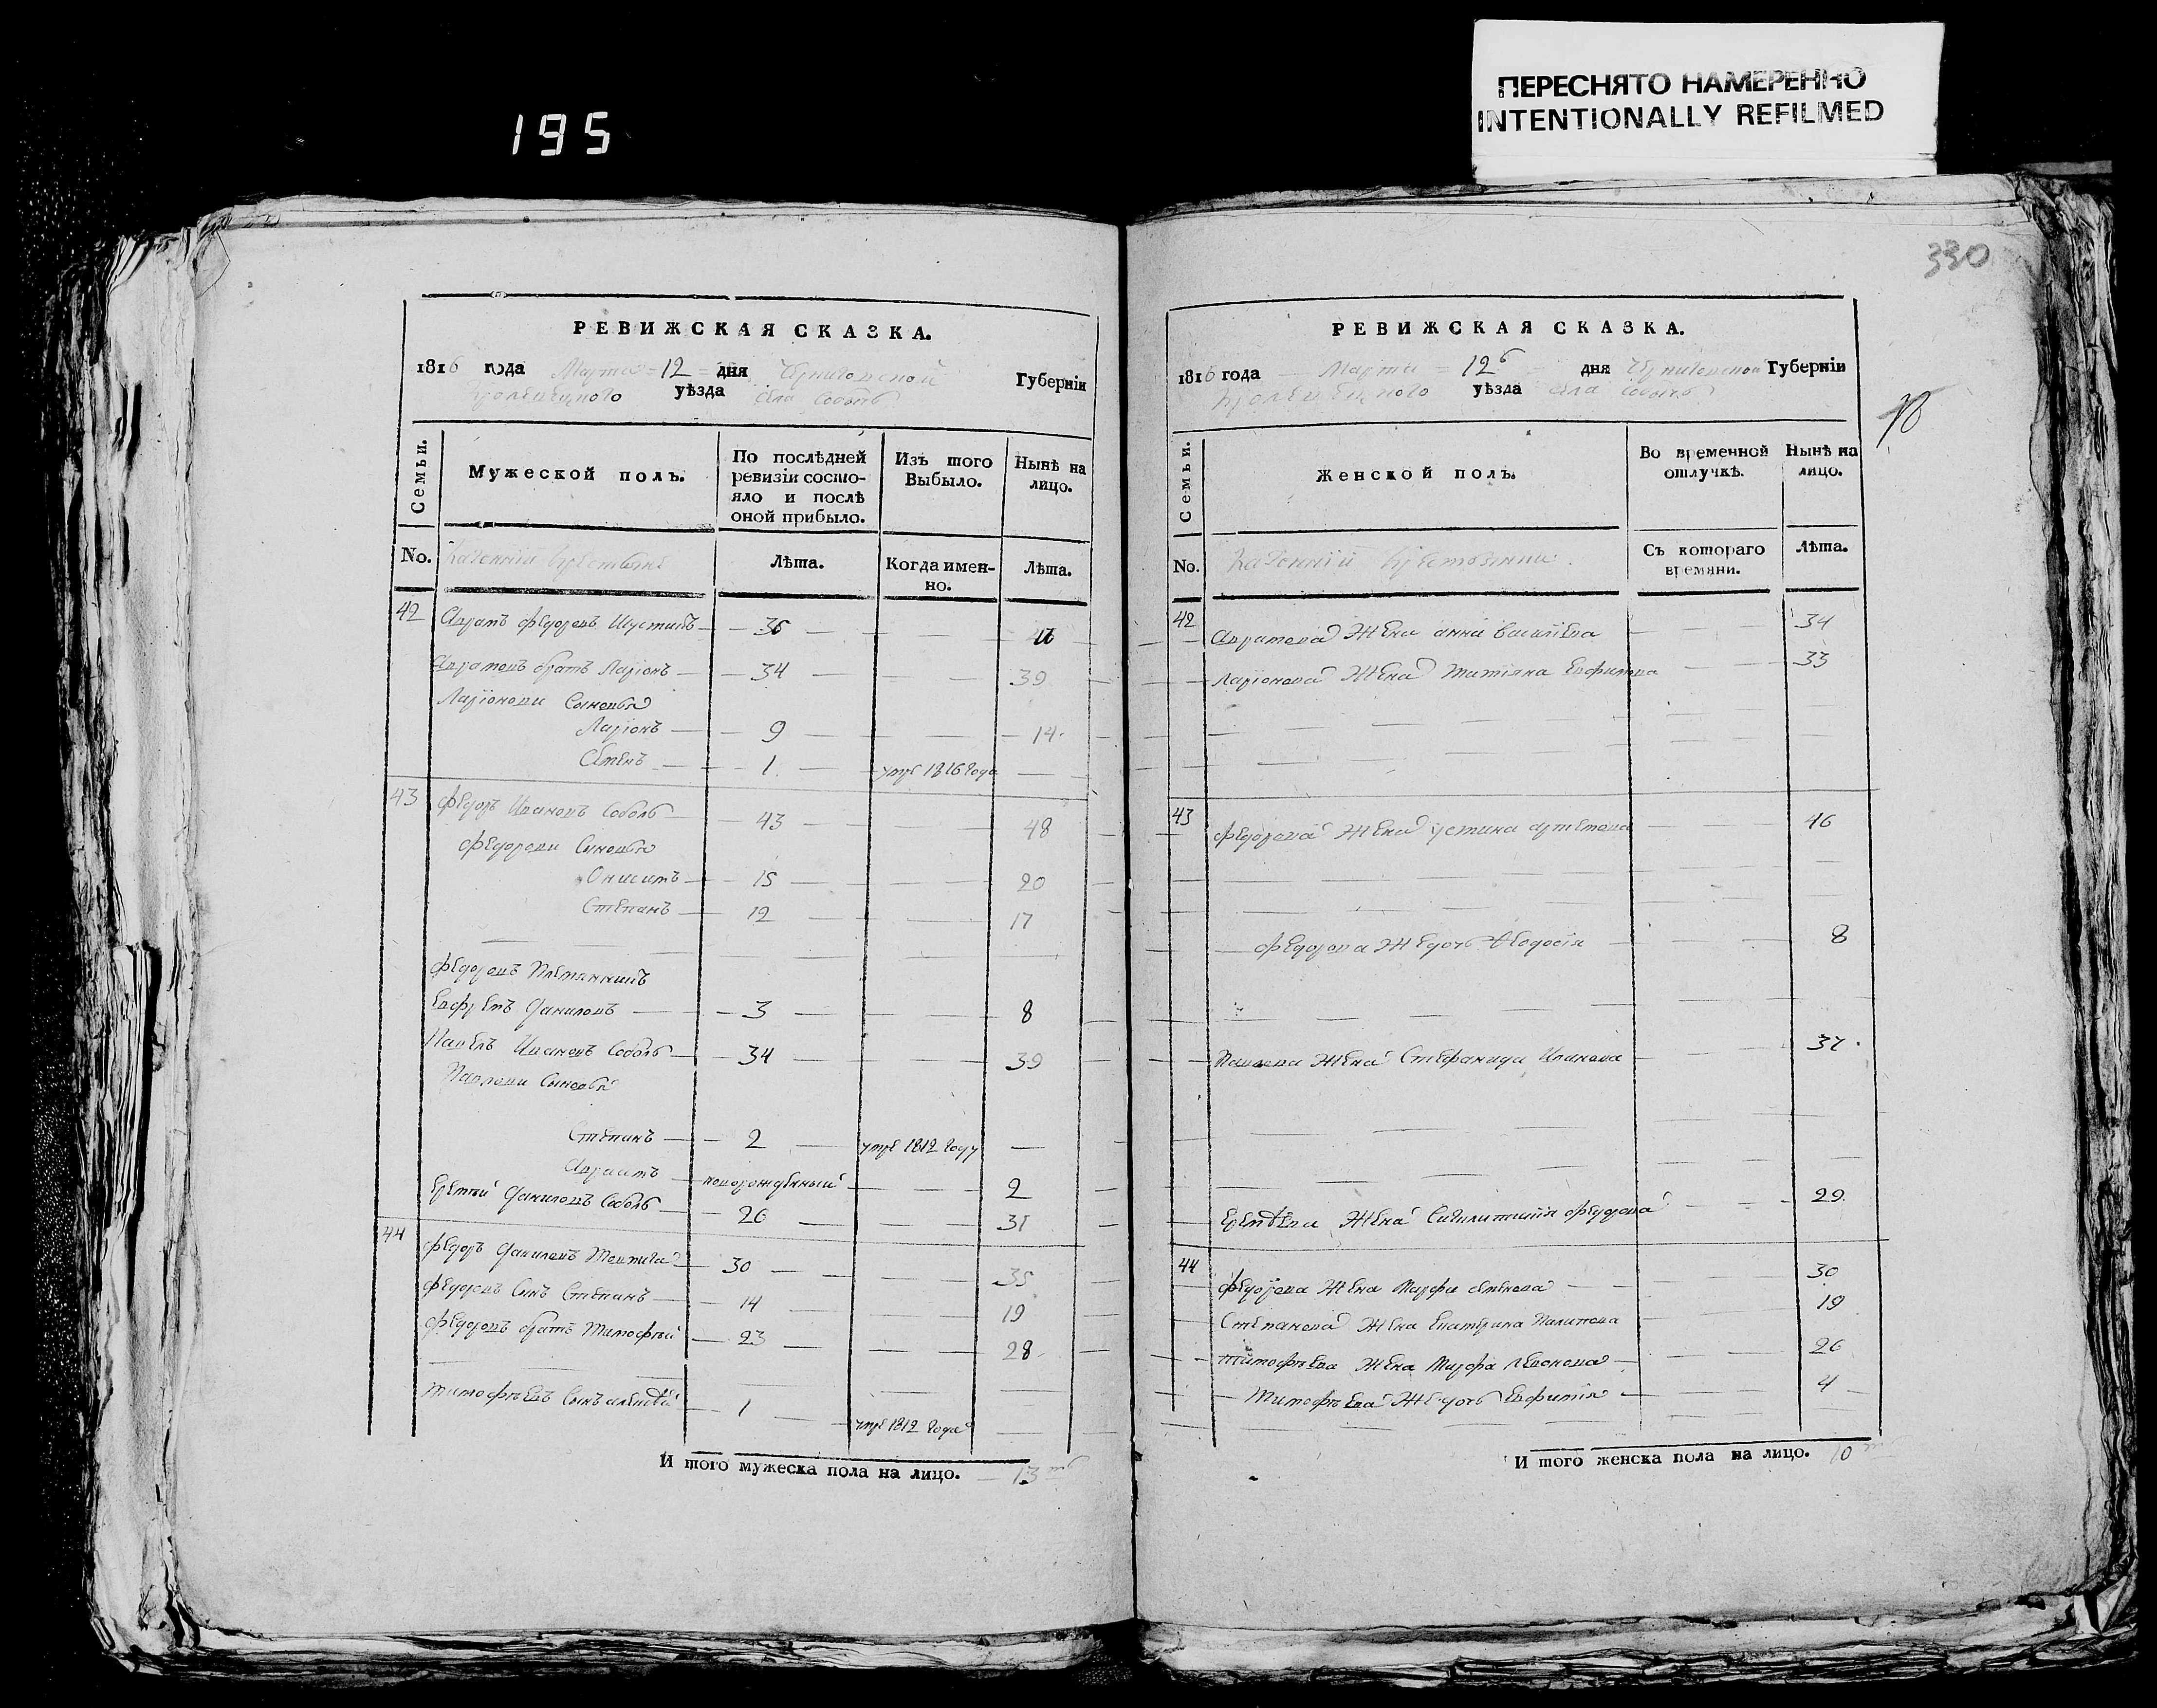 195
ПЕРЕСНЯТО НАМЕРЕННО
INTENTIONALLY REFILMED
330
РЕВИЖСКАЯ СКАЗКА.
1816 года Марта 12 дня Черниговской Губерніи
Кролевецкого уѣзда села Собычъ
Семьи. Мужеской полъ. По послѣдней ревизіи состояло и послѣ оной прибыло. Изъ того Выбыло. Нынѣ на лицо.
No. Казенніи Лѣта. Когда именно. Лѣта.
42 Аврамъ Федоровъ 36
Аврамовъ братъ Ларіонъ 34 39
Ларіонови Сыновья
Ларіонъ 9 14
Семенъ 1 умре 1816 Года
43 Федоръ Ивановъ Соболь 43 48
Федорови Сыновья
Онисимъ 15 20
Степанъ 12 17
Федоровъ Племянникъ
Евфремъ Даниловъ 3 8
Павелъ Ивановъ Соболь 34 39
Павлови Сыновья
Степанъ 2 умре 1812 Году
новорожденный 2
Еремѣй Даниловъ Соболь 26 31
44 Федоръ Даниловъ 30 35
Федоровъ Сынъ Степанъ 14 19
Федоровъ братъ Тимофѣй 23 28
Тимофѣевъ Сынъ Алексѣй 1 умре 1812 Года
И того мужеска пола на лицо. 13
РЕВИЖСКАЯ СКАЗКА.
1816 года Марта 12 дня Черниговской Губерніи
Кролевецкого уѣзда села Собычъ
Семьи. Женской полъ. Во временной отлучкѣ. Нынѣ на лицо.
No. Казенніи Съ котораго времяни. Лѣта.
42 Аврамова Жена Анна Василіева 34
Ларіонова Жена Татіяна Евфимова 33
43 Федорова Жена Устина Артемова 46
Федорова Же дочь Ѳеодосія 8
Павлова Жена Стефанида Иванова 37
Еремѣева Жена Федорова 29
44 Федорова Жена Марфа Семенова 30
Степанова Жена Екатерина 19
Тимофѣева Жена Марфа Левонова 26
Тимофѣева Же дочь Евфимія 4
И того женска пола на лицо. 10